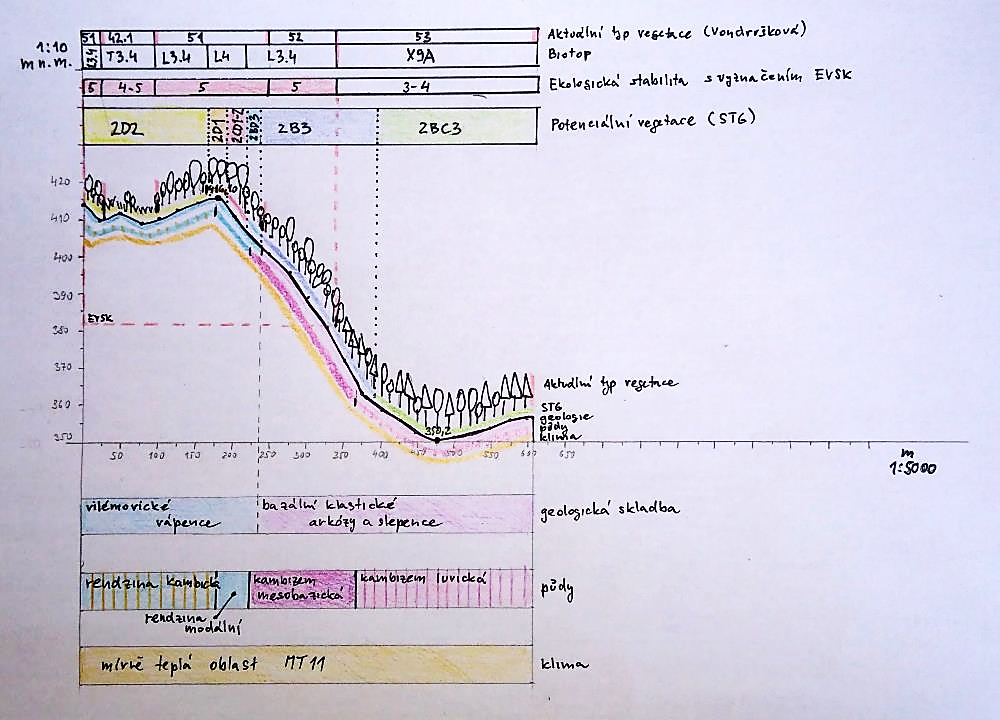 51 42.1 51 52 53 Aktuální typ vegetace (Vondrušková)
1:10
m n.m.
L3.4 T3.4 L3.4 L4 L3.4 X9A Biotop
5 4-5 5 5 3-4 Ekologická stabilita s vyznačením EVSK
2D2 2D1 2CD1-2 2BD3 2B3 2BC3 Potenciální vegetace (STG)
420
410
400
390
EVSK
380
370
360
350
350,2
Aktuální typ vegetace
STG
geologie
půdy
klima
50 100 150 200 250 300 350 400 450 550 600 650
m
1:5000
vilémovické
vápence
bazální klastické
arkózy a slepence
geologická skladba
rendzina kambická
kambizem
mesobazická
kambizem luvická
půdy
rendzina
modální
mírně teplá oblast MT11 klima